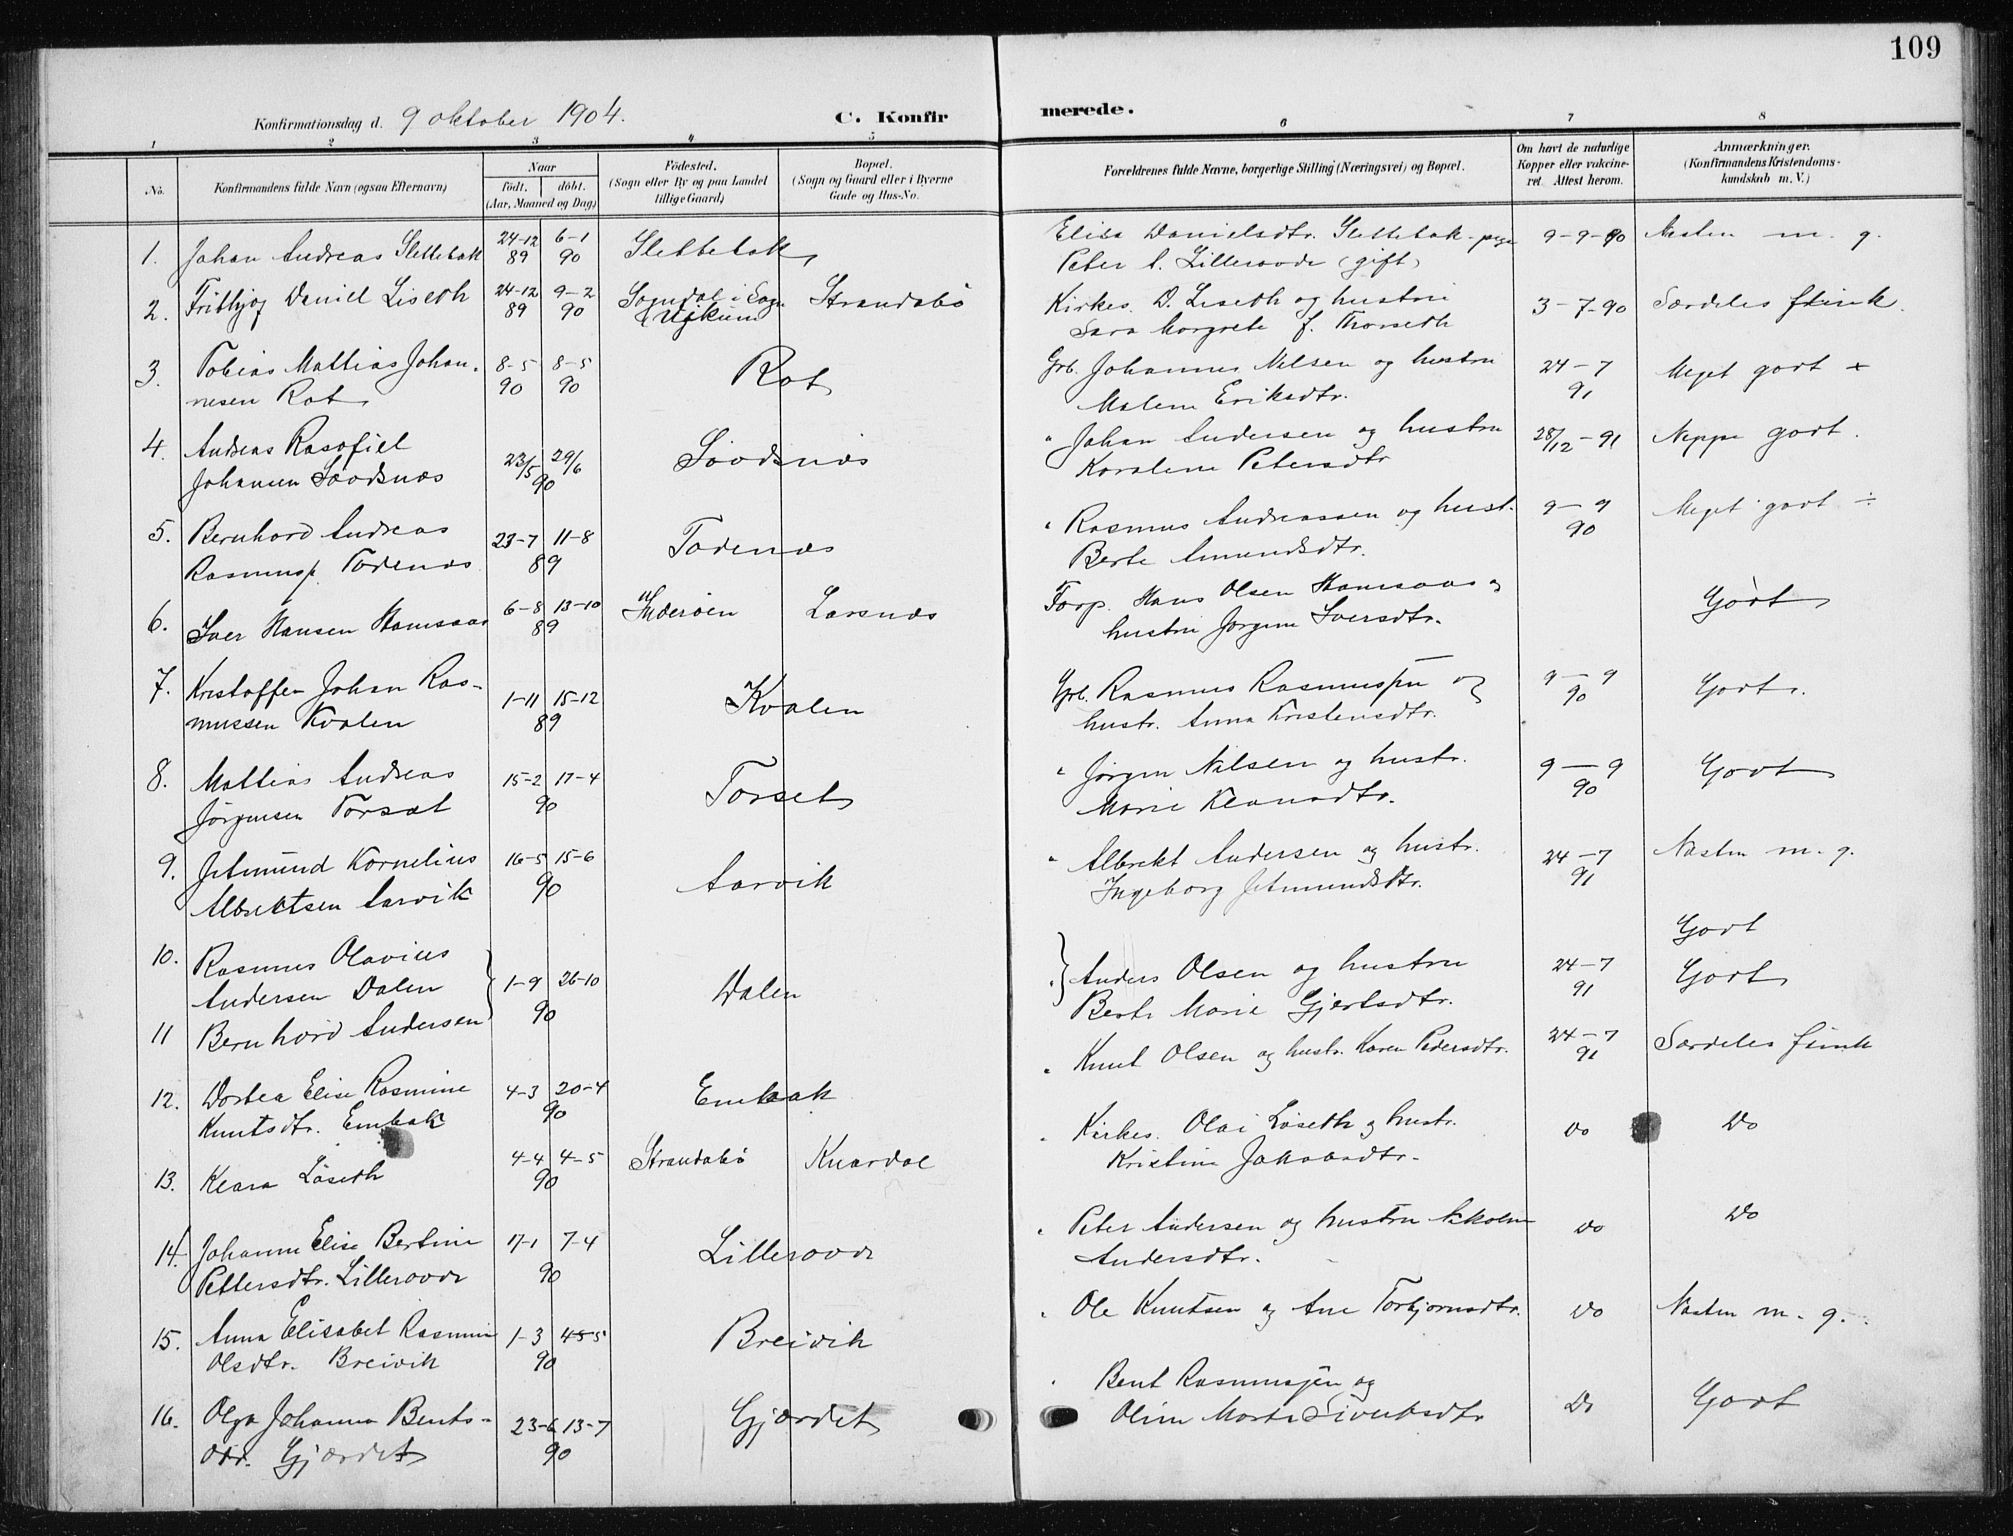 109
Konfirmationsdag d. 9 oktober 1904.
C. Konfir
merede.
1 2 3 4 5 6 7 8
No.
Konfirmandens fulde Navn (ogsaa Efternavn)
Naar
födt. döbt.
(Aar, Maaned og Dag)
Födested.
(Sogn eller By og paa Landet
tillige Gaard)
Bopæl.
(Sogn og Gaard eller i Byerne
Gade og Hus-No.
Forældrenes fulde Navne, borgerlige Stilling (Næringsvei) og Bopæl.
Om havt de naturlige
Kopper eller vakcine-
ret. Attest herom.
Anmærkninger.
(Konfirmandens Kristendoms-
kundskab m. V.)
1. Johan Andreas Slettebak 24-12 89 6-1 90 Slettebak
Elisa Danielsdtr. Slettebak - pige 9-9-90 Næsten m. g.
Peter A. Lillerovde (gift)
2. Fritbjof Daniel Liseth 24-12 89 9-2 90 Sogndal i Sogn Strandabö
Kirkes. D. Liseth og hustru 3-7-90 Særdeles flink.
Sara Margrete f. Thorseth
3. Tobias Mattias Johan-
nesen Rot 8-5 90 8-5 90 Rot
Grb. Johannes Nilsen og hustru 24-7 91 Meget godt +
Malene Eriksdtr.
4. Andreas Rasofiel
Johansen Saodsnæs 23/5 29/6 90 Saodsnæs
" Johan Andersen og hustru 28/12-91 Neppe godt.
Karolene Petersdtr
5. Bernhard Andreas
Rasmuss. Todenæs 23-7 11-8 89 Todenæs
" Rasmus Andreassen og hust. 9-9 90 Meget godt ÷
Berte Amundsdtr.
6. Iver Hansen Hamsaas 6-8 13-10 89 Inderöen Larsnæs
Forp. Hans Olsen Hamsaas og Godt
hustru Jorgine Iversdtr.
7. Kristoffer Johan Ras-
mussen Kvalen 1-11 15-12 89 Kvalen
Grb. Rasmus Rasmussen og 9-9 90 Godt.
hustr. Anna Kristensdtr.
8. Mattias Andreas
Jörgensen Torsæt 15-2 17-4 90 Torset
" Jørgen Nilsen og hustr. 9-9 90 Godt
Marie Klausdtr.
9. Jetmund Kornelius
Albrektsen Aarvik 16-5 15-6 90 Aarvik
" Albrekt Andersen og hustr. 24-7 91 Næsten m. g.
Ingeborg Jetmundsdtr.
10. Rasmus Olavius Godt
Andersen Dalen 1-9 26-10 90 Dalen
" Anders Olsen og hustru 24-7 91 Godt
Berte Marie Gjertsdtr.
11 Bernhard Andersen
" Knut Olsen og hustr. Karen Pedersdtr. 24-7 91 Særdeles flink
12. Dortea Elise Rasmine
Knutsdtr. Embak 4-3 20-4 90 Embak
" Kirkes. Olai Löseth og hustr. Do Do
Kristine Jakobsdtr.
13. Klara Löseth 4-4 4-5 90 Strandabö Knardal
14. Johanne Elise Bertine
Pettersdtr. Lillerovde 17-1 7-4 90 Lillerovde
" Peter Andersen og hustru Do Do
Andersdtr.
15. Anna Elisabet Rasmine
Olsdtr. Breivik 1-3 4-5 90 Breivik
" Ole Knutsen og Ane Torbjornsdtr. Do Næsten m. g.
16. Olga Johanna Bents-
dtr. Gjærdet 23-6 13-7 90 Gjærdet
" Bent Rasmussen og Do Godt
Oline Marta Sivertsdtr